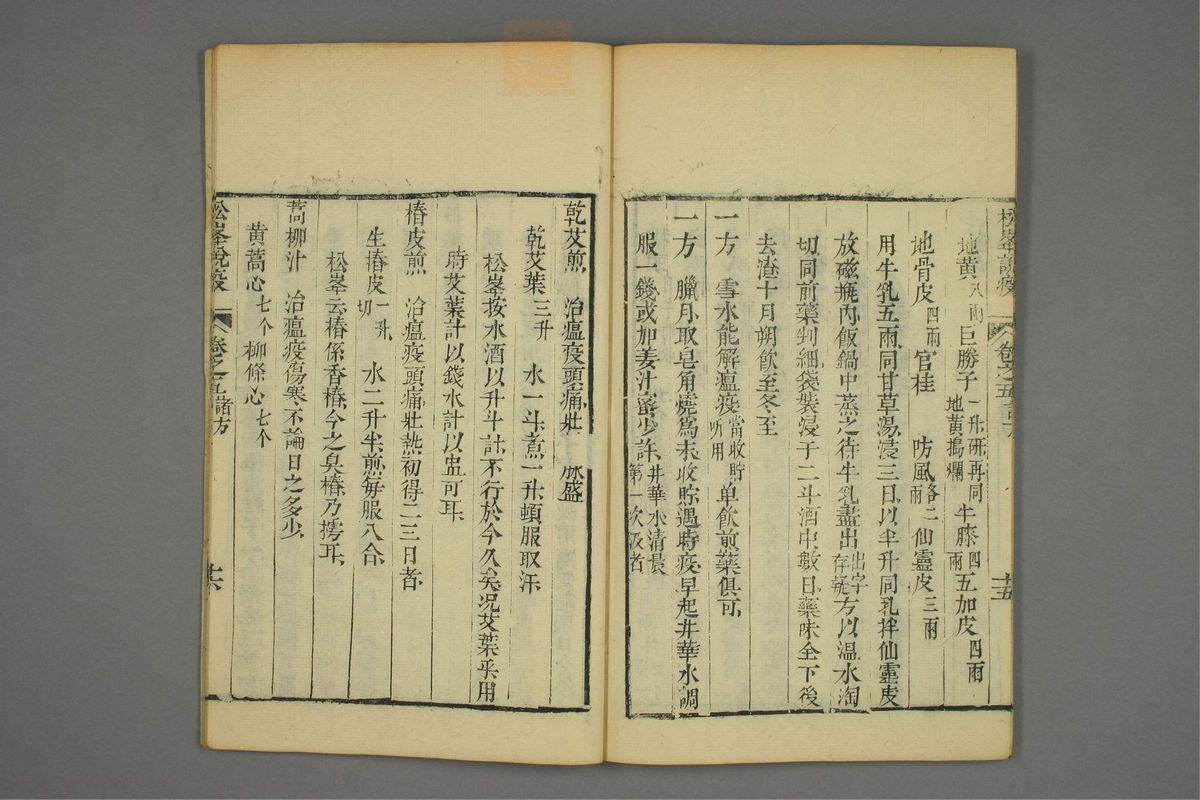 松峯說疫 卷之五 諸方 十五
地黃八兩 巨勝子一升研再同地黃搗爛 牛膝四兩 五加皮四兩
地骨皮四兩 官桂 防風各二兩 仙靈皮三兩
用牛乳五兩同甘草湯浸三日以半升同乳拌仙靈皮
放磁瓶內飯鍋中蒸之待牛乳盡出出字存疑方以溫水淘
切同前藥剉細袋裝浸于二斗酒中數日藥味全下後
去渣十月朔飲至冬至
一方 雪水能解瘟疫當收貯聽用单飲煎藥俱可
一方 臘月取皂角燒為末收貯遇時疫早起井華水調
服一錢或加姜汁蜜少許井華水清晨第一次汲者
乾艾煎 治瘟疫頭痛壯 脉盛
乾艾葉三升 水一斗煮一升頓服取汗
松峯按水酒以升斗計不行於今久矣况艾葉乎用
時艾葉計以錢水計以盅可耳
椿皮煎 治瘟疫頭痛壯熱初得二三日者
生椿皮一升切 水二升半煎每服八合
松峯云椿係香椿今之臭椿乃樗耳
蒿柳汁 治瘟疫傷寒不論日之多少
黃蒿心七个 柳條心七个
松峯說疫 卷之五 諸方 十六